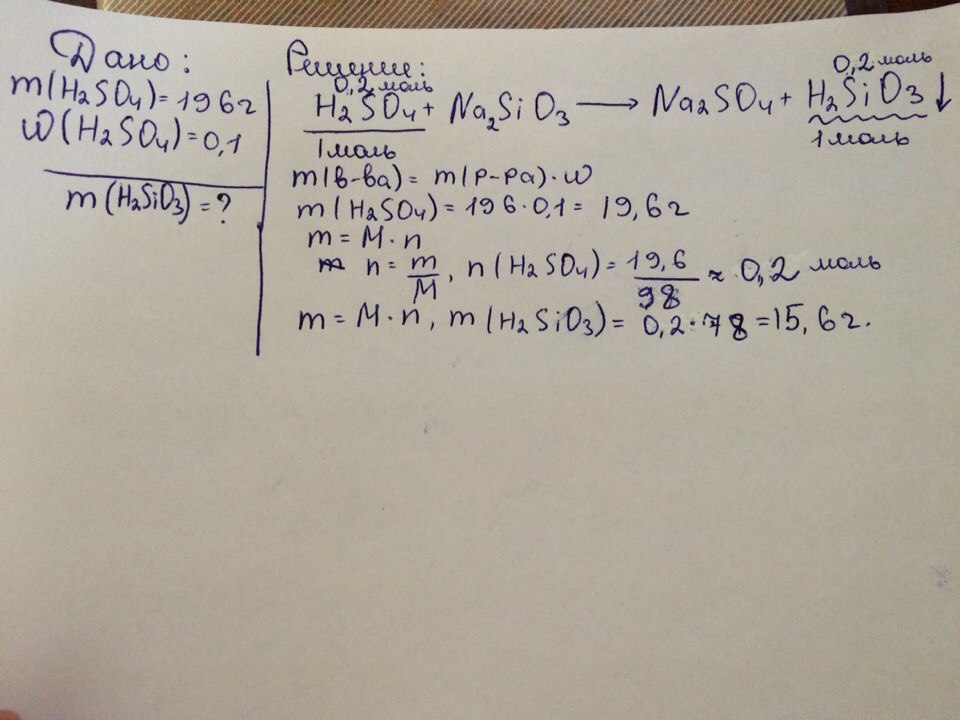 Дано:
m(H2SO4)=196г
W(H2SO4)=0,1
m(H2SiO3)=?
Решение:
0,2 моль
0,2 моль
H2SO4+ Na2SiO3 → Na2SO4+ H2SiO3↓
1 моль
1 моль
m(в-ва)= m(р-ра)·W
m(H2SO4)=196·0,1=19,6г
m=M·n
n=m/M, n(H2SO4)=19,6/98≈0,2 моль
m=M·n, m(H2SiO3)=0,2·78=15,6г.